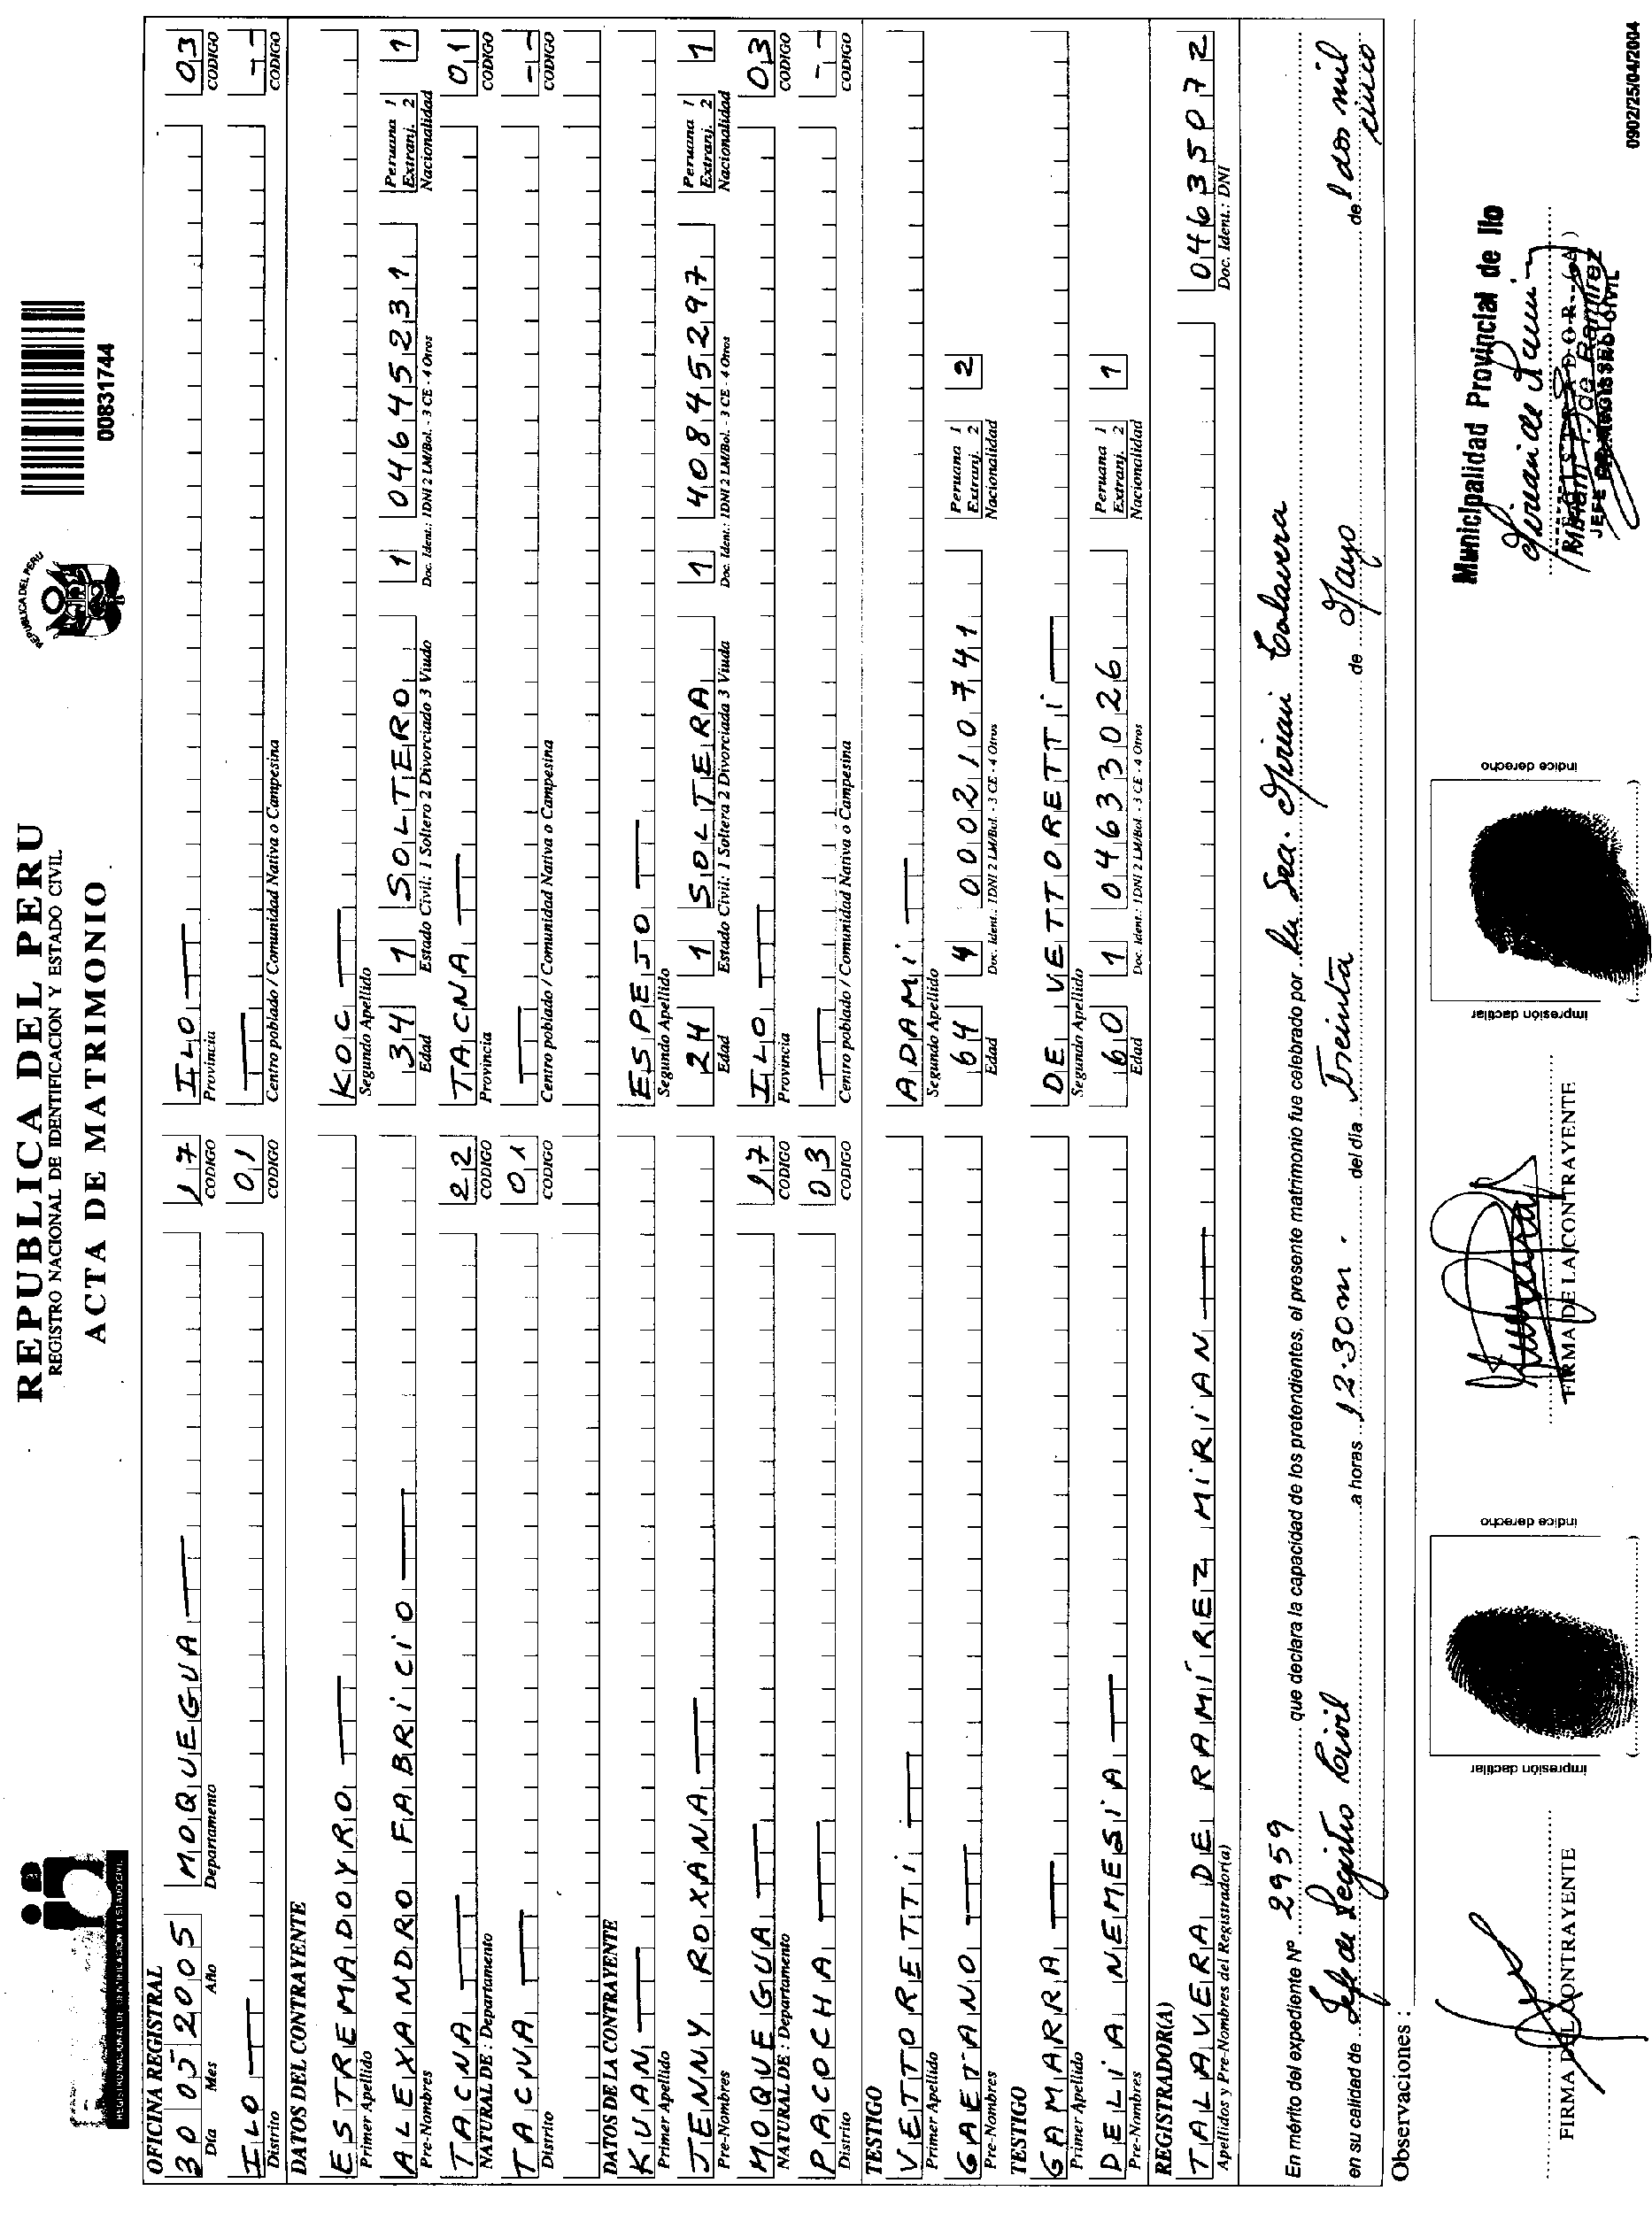 REPUBLICA DEL PERU
REGISTRO NACIONAL DE IDENTIFICACION Y ESTADO CIVIL
ACTA DE MATRIMONIO
REGISTRO NACIONAL DE IDENTIFICACIÓN Y ESTADO CIVIL
REPUBLICA DEL PERU
00831744
OFICINA REGISTRAL
30 05 2005 MOQUEGUA 17 ILO 03
Día Mes Año Departamento CODIGO Provincia CODIGO
ILO 01 --
Distrito CODIGO Centro poblado / Comunidad Nativa o Campesina CODIGO
DATOS DEL CONTRAYENTE
ESTREMADOYRO KOC
Primer Apellido Segundo Apellido
ALEXANDRO FABRICIO 34 1 SOLTERO 1 04645231 Peruana 1 Extranj. 2 1
Pre-Nombres Edad Estado Civil: 1 Soltero 2 Divorciado 3 Viudo Doc. Ident.: 1DNI 2 LM/Bol. - 3 CE - 4 Otros Nacionalidad
TACNA 22 TACNA 01
NATURAL DE : Departamento CODIGO Provincia CODIGO
TACNA 01 --
Distrito CODIGO Centro poblado / Comunidad Nativa o Campesina CODIGO
DATOS DE LA CONTRAYENTE
KUAN ESPEJO
Primer Apellido Segundo Apellido
JENNY ROXANA 24 1 SOLTERA 1 40845297 Peruana 1 Extranj. 2 1
Pre-Nombres Edad Estado Civil: 1 Soltera 2 Divorciada 3 Viuda Doc. Ident.: 1DNI 2 LM/Bol. - 3 CE - 4 Otros Nacionalidad
MOQUEGUA 17 ILO 03
NATURAL DE : Departamento CODIGO Provincia CODIGO
PACOCHA 03 --
Distrito CODIGO Centro poblado / Comunidad Nativa o Campesina CODIGO
TESTIGO
VETTORETTI ADAMI
Primer Apellido Segundo Apellido
GAETANO 64 4 000210741 Peruana 1 Extranj. 2 2
Pre-Nombres Edad Doc. Ident.: 1DNI 2 LM/Bol. - 3 CE - 4 Otros Nacionalidad
TESTIGO
GAMARRA DE VETTORETTI
Primer Apellido Segundo Apellido
DELIA NEMESIA 60 1 04633026 Peruana 1 Extranj. 2 1
Pre-Nombres Edad Doc. Ident.: 1DNI 2 LM/Bol. - 3 CE - 4 Otros Nacionalidad
REGISTRADOR(A)
TALAVERA DE RAMÍREZ MIRIAN 04635072
Apellidos y Pre-Nombres del Registrador(a) Doc. Ident.: DNI
En mérito del expediente Nº 2959 que declara la capacidad de los pretendientes, el presente matrimonio fue celebrado por La Sra. Mirian Talavera
en su calidad de Jefe de Registro Civil a horas 12.30m. del día Treinta de Mayo de l dos mil cinco
Observaciones :
Municipalidad Provincial de Ilo
REGISTRADOR (A)
Miriam T. de Ramírez
JEFE DE REGISTRO CIVIL
FIRMA DEL CONTRAYENTE
impresión dactilar
índice derecho
FIRMA DE LA CONTRAYENTE
impresión dactilar
índice derecho
0902/25/04/2004